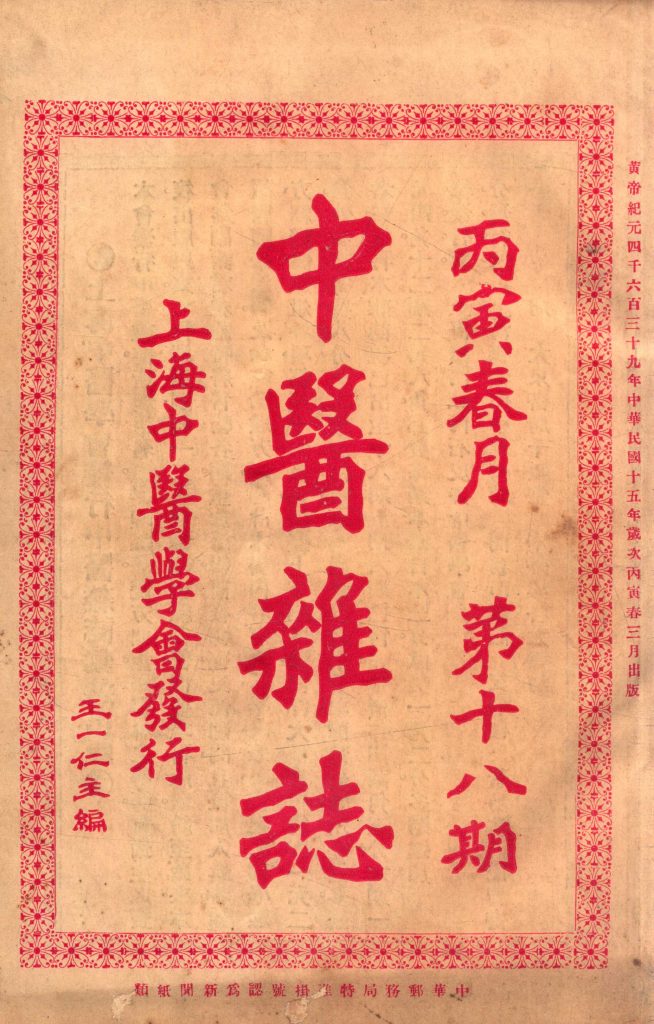 黃帝紀元四千六百三十九年中華民國十五年歲次丙寅春三月出版
丙寅春月 第十八期
中醫雜誌
上海中醫學會發行
王一仁主編
中華郵務局特准掛號認爲新聞紙類